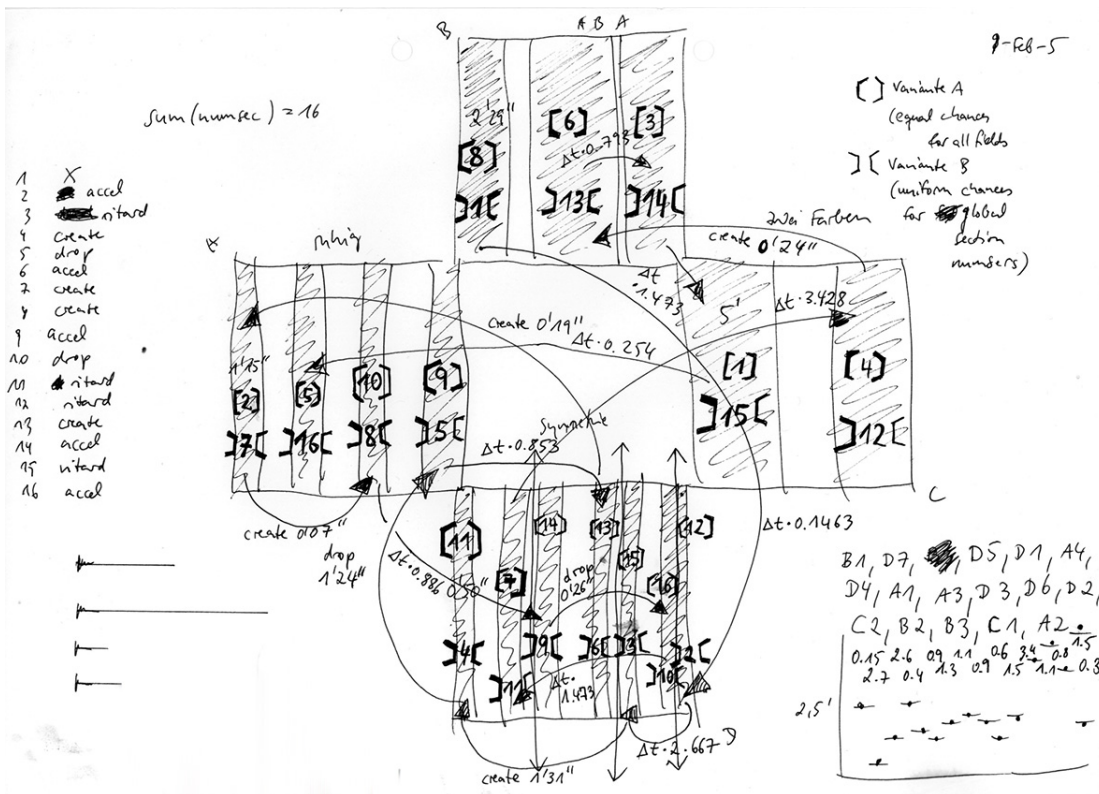 B
A B A
9-Feb-5
sum(numsec) = 16
[ ] Variante A
(equal chances
for all fields
] [ Variante B
(uniform chances
for global
section
numbers)
1 X
2 accel
3 ritard
4 create
5 drop
6 accel
7 create
8 create
9 accel
10 drop
11 ritard
12 ritard
13 create
14 accel
15 ritard
16 accel
2'29"
[8]
]1[
[6]
Δt·0.793
]13[
[3]
]14[
ruhig
zwei Farben
create 0'24"
Δt
·1.473
5'
Δt·3.428
create 0'19"
Δt·0.254
1'15"
[2]
[5]
[10]
[9]
[1]
[4]
]7[
]16[
]8[
]5[
]15[
]12[
Symmetrie
Δt·0.853
C
create 0'07"
drop
1'24"
Δt·0.886
0'50"
Δt·0.1463
[11]
[7]
[14]
[13]
[15]
[12]
[16]
drop
0'26"
]4[
]11[
]9[
]6[
]3[
]10[
]2[
Δt·
1.473
Δt·2.667
D
create 1'31"
B1, D7, D5, D1, A4,
D4, A1, A3, D3, D6, D2,
C2, B2, B3, C1, A2
0.15 2.6 0.9 1.1 0.6 3.4 0.8 1.5
2.7 0.4 1.3 0.9 1.5 1.1 0.3
2,5'